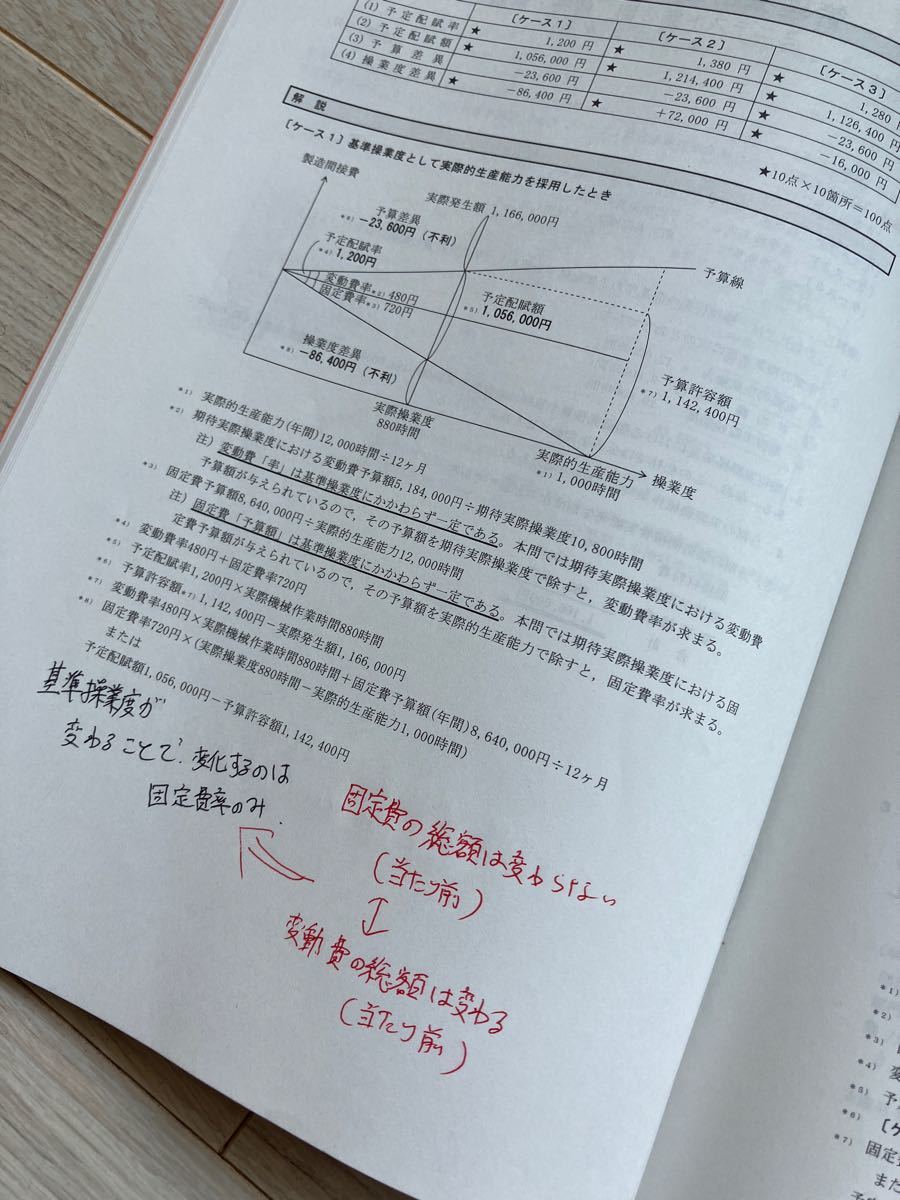 〔ケース1〕 〔ケース2〕 〔ケース3〕
(1) 予定配賦率 ★ 1,200 円 ★ 1,380 円 ★ 1,280 円
(2) 予定配賦額 ★ 1,056,000 円 ★ 1,214,400 円 ★ 1,126,400 円
(3) 予算差異 −23,600 円 −23,600 円 −23,600 円
(4) 操業度差異 ★ −86,400 円 ★ +72,000 円 ★ −16,000 円
★10点×10箇所=100点
解説
〔ケース1〕基準操業度として実際的生産能力を採用したとき
製造間接費
実際発生額 1,166,000円
予算差異
*6) −23,600円(不利)
予算線
予定配賦率
*4) 1,200円
変動費率*2) 480円
固定費率*3) 720円
予定配賦額
*5) 1,056,000円
操業度差異
*8) −86,400円(不利)
予算許容額
*7) 1,142,400円
実際操業度
880時間
実際的生産能力
*1) 1,000時間
操業度
*1) 実際的生産能力(年間)12,000時間÷12ヶ月
*2) 期待実際操業度における変動費予算額5,184,000円÷期待実際操業度10,800時間
注)変動費「率」は基準操業度にかかわらず一定である。本問では期待実際操業度における変動費
予算額が与えられているので,その予算額を期待実際操業度で除すと,変動費率が求まる。
*3) 固定費予算額8,640,000円÷実際的生産能力12,000時間
注)固定費「予算額」は基準操業度にかかわらず一定である。本問では期待実際操業度における固
定費予算額が与えられているので,その予算額を実際的生産能力で除すと,固定費率が求まる。
*4) 変動費率480円+固定費率720円
*5) 予定配賦率1,200円×実際機械作業時間880時間
*6) 予算許容額*7) 1,142,400円−実際発生額1,166,000円
*7) 変動費率480円×実際機械作業時間880時間+固定費予算額(年間)8,640,000円÷12ヶ月
*8) 固定費率720円×(実際操業度880時間−実際的生産能力1,000時間)
または
予定配賦額1,056,000円−予算許容額1,142,400円
基準操業度が
変わることで、変化するのは
固定費率のみ.
固定費の総額は変わらない
(当たり前)
変動費の総額は変わる
(当たり前)
*1)
*2)
*3)
*4) 変
*5) 予
*6) 〔ケ
*7) 固定
また